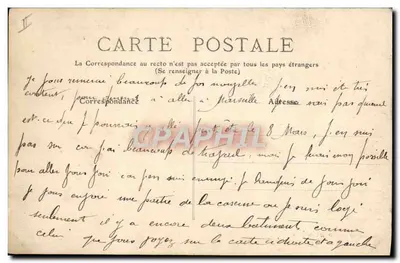 II
CARTE POSTALE
La Correspondance au recto n'est pas acceptée par tous les pays étrangers
(Se renseigner à la Poste)
je vous remercie beaucoup de vos nouvelles j'en suis et très
content, pour à aller à Marseille je ne sais pas quand
Correspondance
Adresse
est-ce que je pourrais le 8 Mars, j'en suis
pas sûr, car j'ai beaucoup de mais je ferai mon possible
pour aller vous voir car je
je vous envoie une partie de la caserne ou je suis logé
seulement il y a encore deux batiment comme
celui que vous voyez sur la carte a droite et a gauche